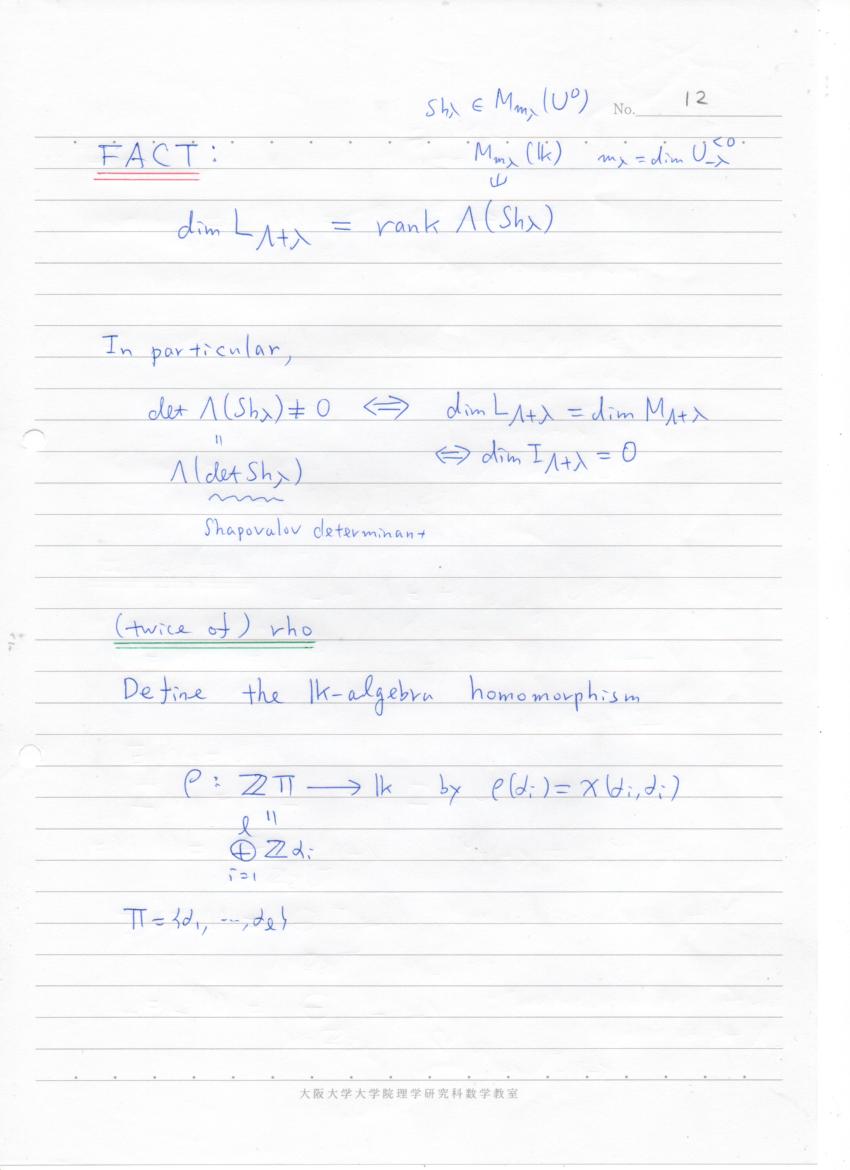 Shλ ∈ M_{mλ}(U⁰) No. 12
FACT:
M_{mλ}(𝕜) mλ = dim U^{<0}_{-λ}
⋓
dim L_{Λ+λ} = rank Λ(Shλ)
In particular,
det Λ(Shλ) ≠ 0 ⟺ dim L_{Λ+λ} = dim M_{Λ+λ}
॥
Λ(det Shλ) ⟺ dim I_{Λ+λ} = 0
Shapovalov determinant
(twice of) rho
Define the 𝕜-algebra homomorphism
ρ : ℤΠ ⟶ 𝕜 by ρ(αi) = χ(αi, αi)
॥
⊕_{i=1}^{ℓ} ℤαi
Π = {α₁, ⋯, αℓ}
大阪大学大学院理学研究科数学教室